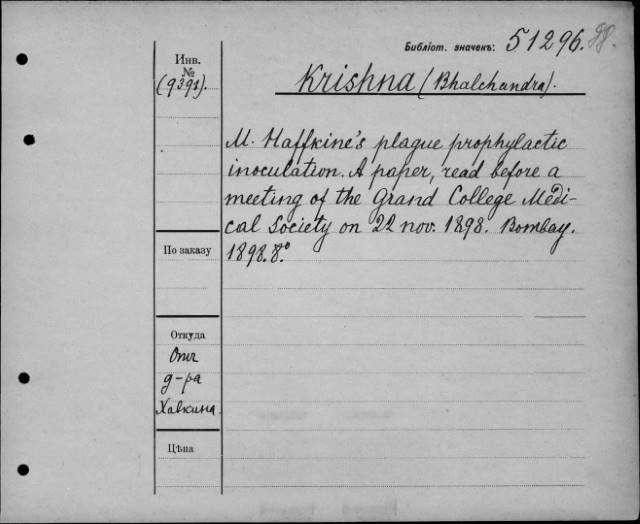 Библіот. значекъ: 51296.
Инв.
№
(9391).
Krishna (Bhalchandra).
M. Haffkine's plague prophylactic
inoculation. A paper, read before a
meeting of the Grand College Medi-
cal Society on 22 nov. 1898. Bombay.
1898. 8.°
По заказу
Откуда
Отъ
д-ра
Хавкина.
Цѣна